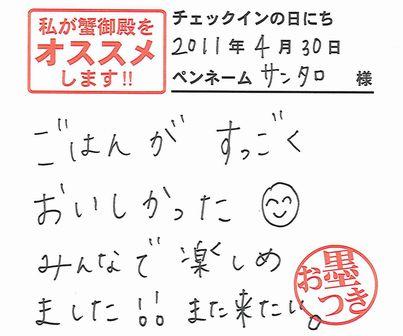 私が蟹御殿を
オススメ
します!!
チェックインの日にち
2011年4月30日
ペンネーム サンタロ 様
ごはんが すっごく
おいしかった
みんなで 楽しめ
ました!! また来たい。
お墨つき